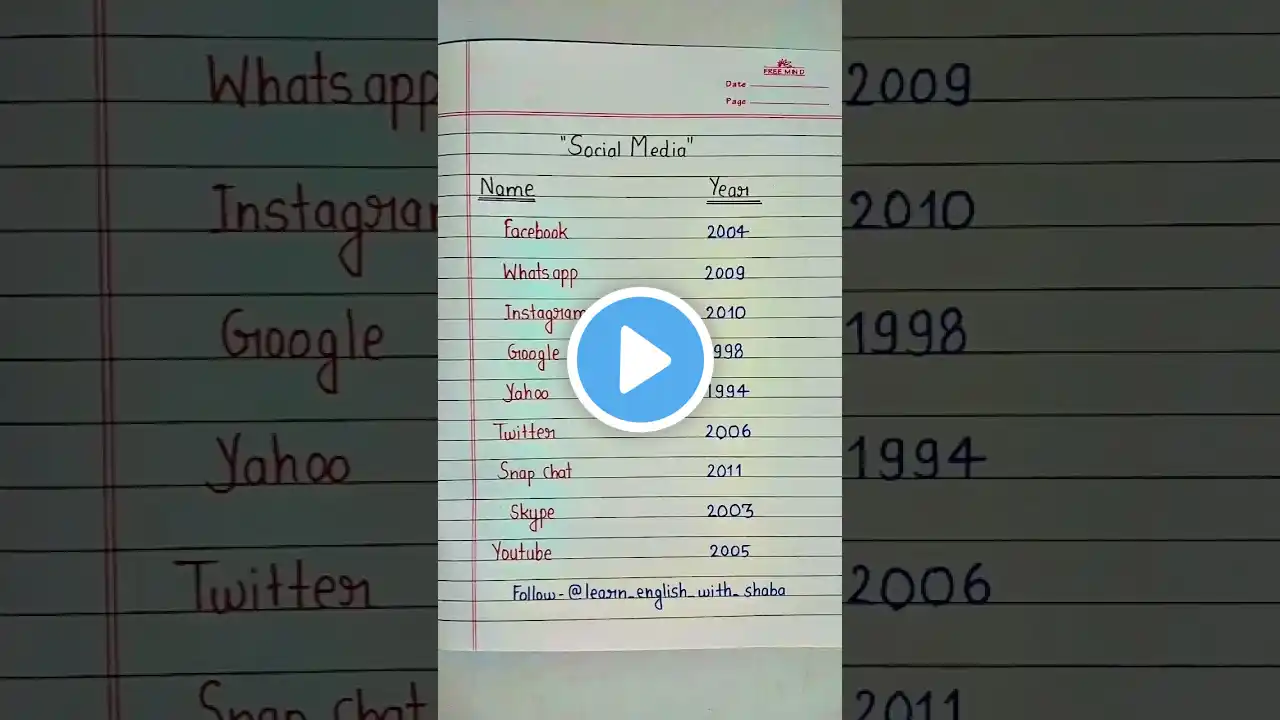 FREE MIND
Date
Page
"Social Media"
Name Year
Facebook 2004
Whats app 2009
Instagram 2010
Google 1998
Yahoo 1994
Twitter 2006
Snap chat 2011
Skype 2003
Youtube 2005
Follow - @learn_english_with_shaba
Whats app 2009
Instagram 2010
Google 1998
Yahoo 1994
Twitter 2006
Snap chat 2011